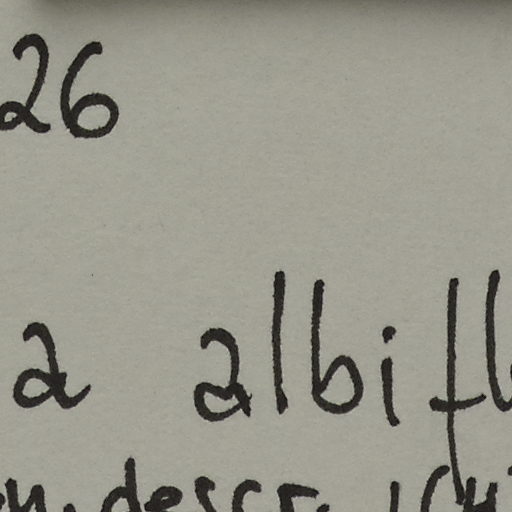 26
a albifl
descr.